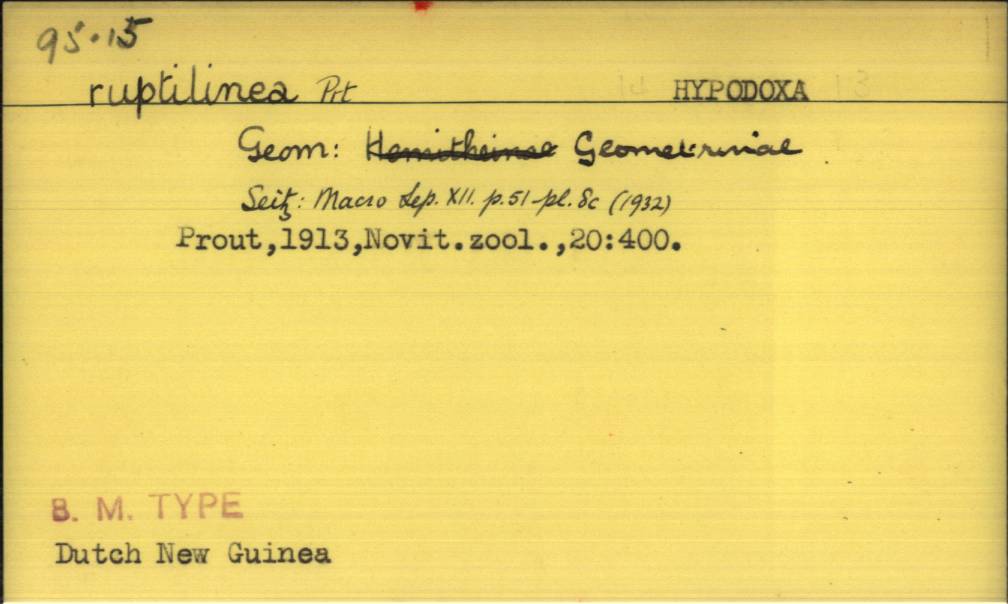 95.15
ruptilinea Prt HYPODOXA
Geom: Hemitheinae Geometrinae
Seitz: Macro Lep. XII. p.51 pl. 8c (1932)
Prout,1913,Novit.zool.,20:400.
B. M. TYPE
Dutch New Guinea